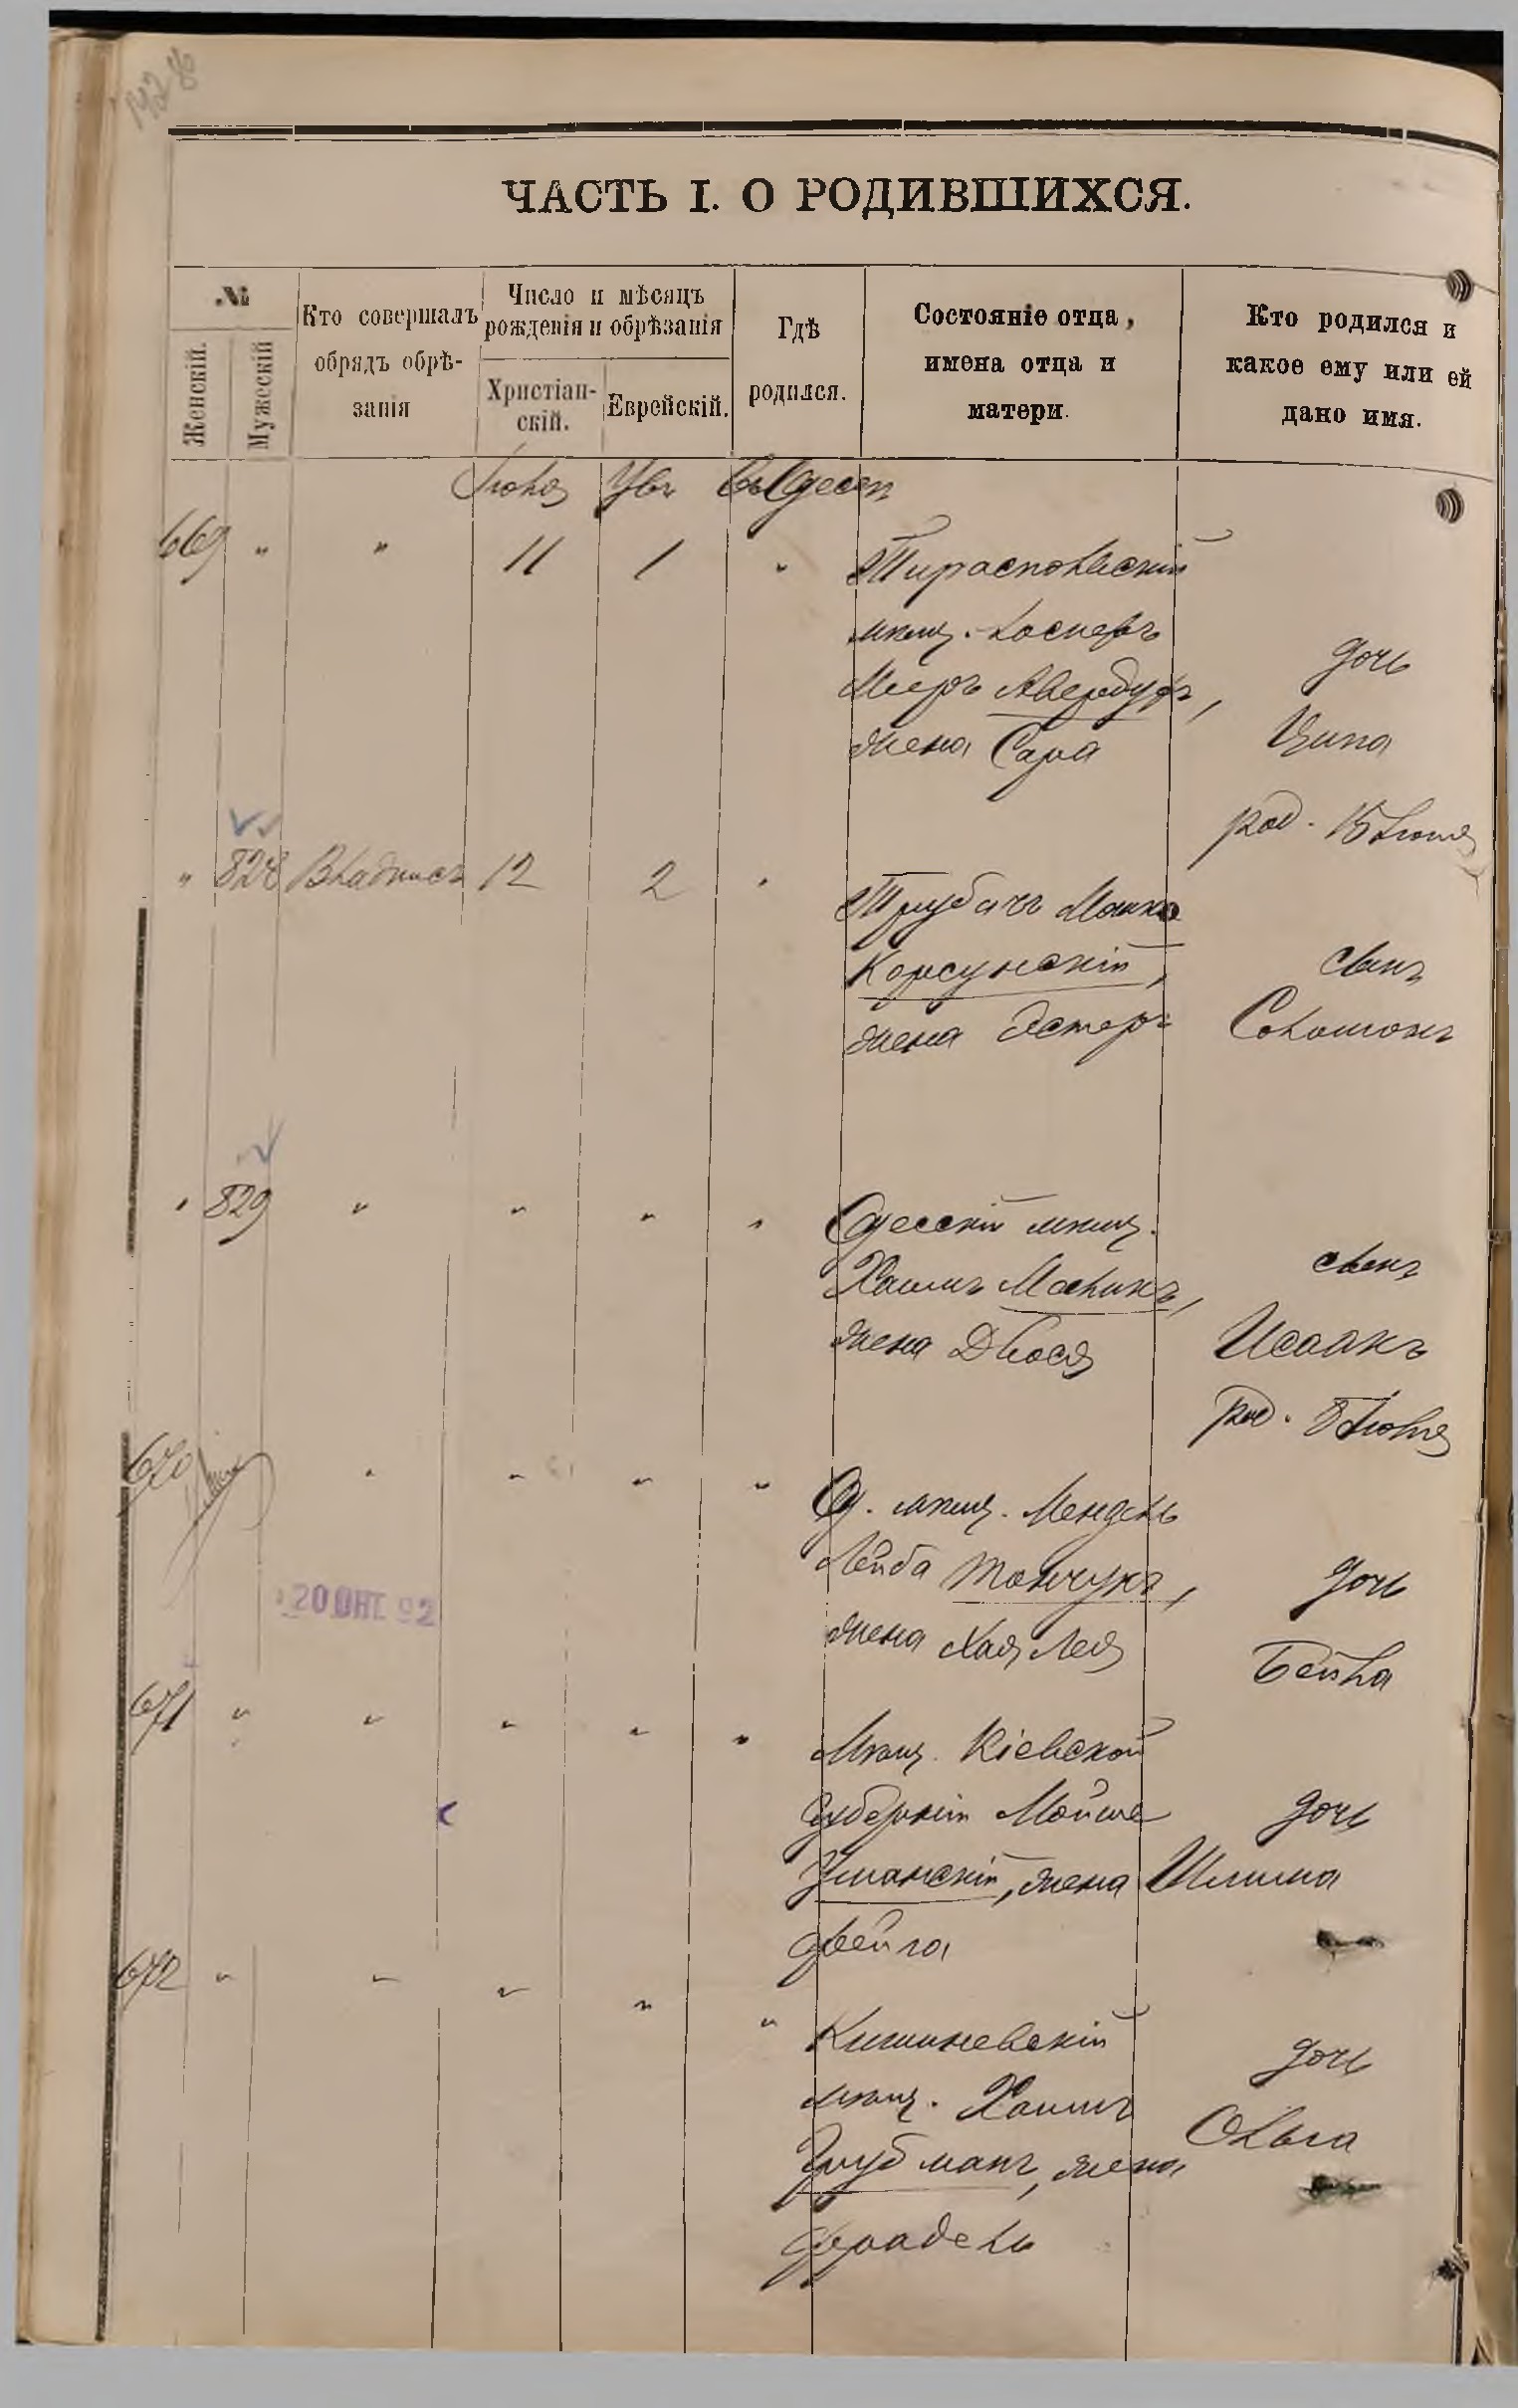 ЧАСТЬ I. О РОДИВШИХСЯ.
№
Женскій.
Мужескій
Кто совершалъ
обрядъ обрѣ-
занія
Число и мѣсяцъ
рожденія и обрѣзанія
Христіан-
скій.
Еврейскій.
Гдѣ
родился.
Состояніе отца,
имена отца и
матери.
Кто родился и
какое ему или ей
дано имя.
ІюляУвъ Въ Одессѣ
669 " " 11 1 " Тираспольскій
мѣщ.
Мееръ Авербухъ,
жена Сара
дочь
Ципа
" 828 Владмисъ 12 2 "
Трубачъ Мошко
Корсунскій,
жена Эстеръ
сынъ
Соломонъ
род. 15 Іюня
" 829 " " " "
Одесскій мѣщ.
Хаимъ Маликъ,
жена Двося
сынъ
Исаакъ
род. 5 Іюля
670 " " " "
Од. мѣщ. Мендель
Лейба Толчукъ,
жена Хая Лея
дочь
Бейла
20 ОКТ. 92
671 " " " " "
Мѣщ. Кіевской
губерніи Мойше
Уманскій, жена
Фейга
дочь
Шлима
672 " " " " "
Кишиневскій
мѣщ. Хаимъ
Грубманъ, жена
Фрадель
дочь
Ольга